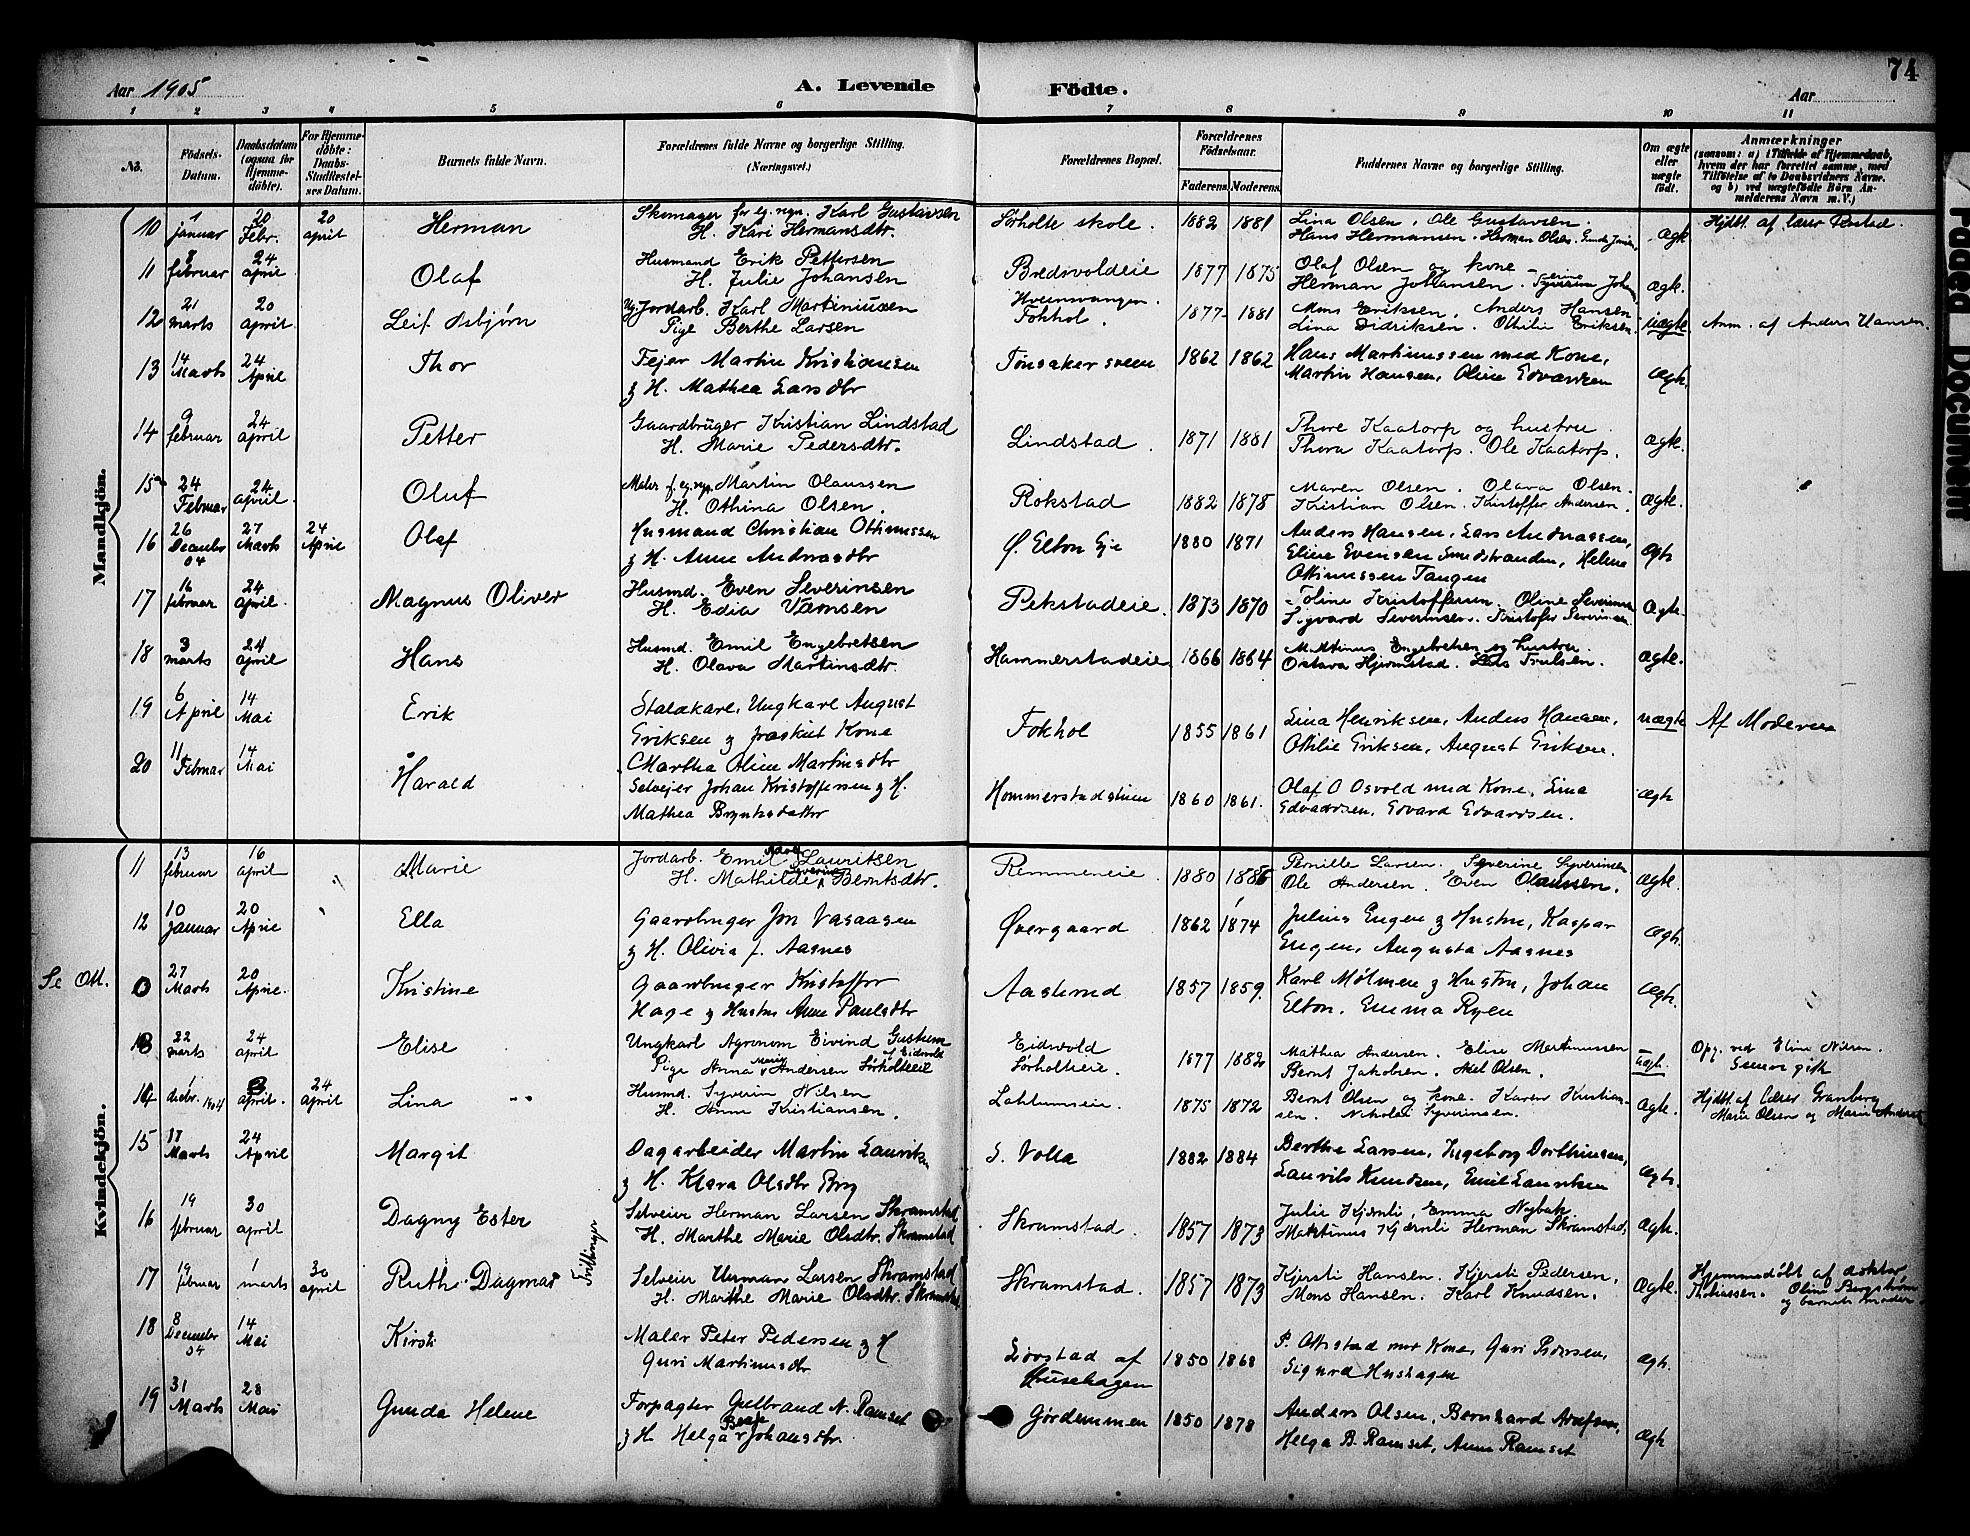 74
Aar 1905
A. Levende Födte.
Aar
1 2 3 4 5 6 7 8 9 10 11
No.
Födsels-Datum.
Daabsdatum (ogsaa for Hjemme-döbte).
For Hjemme-döbte: Daabs-Stadfæstel-ses Datum.
Barnets fulde Navn.
Forældrenes fulde Navne og borgerlige Stilling. (Næringsvei.)
Forældrenes Bopæl.
Forældrenes Födselsaar.
Faderens. Moderens.
Faddernes Navne og borgerlige Stilling.
Om ægte eller uægte födt.
Anmærkninger
(saasom: a) i Tilfælde af Hjemmedaab, hvem der har forrettet samme, med Tilföielse af to Daabsvidners Navne. og b) ved uægtefödte Börn Anmelderens Navn m. V.)
Mandkjön.
10 1 januar 20 Febr. 20 april Herman Skomager for eg. regn. Karl Gustavsen
H. Kari Hermansdtr. Sørholte skole. 1882 1881 Lina Olsen. Ole Gustavsen.
Hans Hermansen. Herman Olsen. Ægte Hjdbt. af lærer
11 8 februar 24 april. Olaf Husmand Erik Pettersen
H. Julie Johansen Bredvoldeie 1877 1875 Olaf Olsen og kone
Herman Johansen. Ægte.
12 21 marts 20 april. Leif Asbjørn Ug. Jordarb. Karl Martiniussen
Pige Berthe Larsen Hveemvangen. Fokhol. 1877 1881 Mons Eriksen. Anders Hansen
Lina Didriksen. Othilie Eriksen. uægte Anm. af Anders Hansen.
13 14 Marts 24 April Thor Fejer Martin Kristiansen
& H. Mathea Larsdtr Tønsakersveen 1862 1862 Hans Martinussen med Kone,
Martin Hansen, Oline Edvardsen Ægte.
14 9 februar 24 april Petter Gaardbruger Kristian Lindstad
H. Marie Pedersdtr. Lindstad. 1871 1881 Thore Kaatorp og hustru.
Thora Kaatorp. Ole Kaatorp. Ægte.
15 24 Februar 24 april. Oluf Maler f. eg. regn. Martin Olaussen
H. Othina Olsen. Rokstad 1882 1878 Maren Olsen. Olava Olsen.
Kristian Olsen. Kristoffer Andersen. Ægte.
16 26 December 04 27 Marts 24 Aprie Olaf Husmand Christian Ottinussen
& H. Anne Andreasdtr Ø. Elton Eje 1880 1871 Anders Hansen, Lars Andreassen,
Eline Evensen Sundstranden, Helene
Ottinussen Tangen Ægte
17 16 februar 24 april. Magnus Oliver Husmd. Even Severinsen
H. Edia Pekstadeie. 1873 1870 Toline Kristoffersen. Oline Severinsen
Sigvard Severinsen. Kristofer Severinsen. Ægte.
18 3 marts 24 april Hans Husmd. Emil Engebretsen
H. Olava Martinsdtr. Hammerstadeie 1866 1864 Mattinus Engebretsen og hustru.
Oktava Hjermstad. Lars Trulsen. Ægte.
19 6 April 14 Mai Erik Staldkarl, Ungkarl August
Eriksen & fraskilt Kone
Martha Oline Martinsdtr Fokhol 1855 1861 Lina Henriksen, Anders Hansen,
Othilie Eriksen, August Eriksen. uægte Af Moderen
20 11 Februar 14 Mai Harald Selvejer Johan Kristoffersen & H.
Mathea Hommerstadstuen 1860 1861. Olaf O Osvold med Kone, Lina
Edvardsen, Edvard Edvardsen. Ægte
Kvindekjön.
11 13 februar 16 april Marie Jordarb. Emil Adolf Lauritsen
H. Mathilde Syverine Berntsdtr. Remmeneie. 1880 1886 Pernille Larsen. Syverine Syverinsen
Ole Andersen. Even Olaussen. Ægte.
12 10 Januar 20 Aprie Ella Gaardbruger Jon Vasaasen
& H. Olivia f. Aasnes Øvergaard 1862 1874 Julius Engen & Hustru, Kaspar
Engen, Augusta Aasnes Ægte.
Se Ott. 0 27 Marts 20 Aprie. Kristine Gaardbruger Kristoffer
Hage & Hustru Anne Paulsdtr Aaslund 1857 1859. Karl Mølmen & Hustru, Johan
Elton, Emma Ryen Ægte.
13 22 marts 24 april Elise Ungkarl Agronom Eivind Gustum af Eidsvold
Pige Anna Marie Andersen Sørholteeie Eidsvold
Sørholteeie. 1877 1882 Mathea Andersen. Elise Martinussen
Bernt Jakobsen. Axel Olsen. Uægte. Opg. ved Eline Nilsen.
14 decbr. 1904 april. 24 april Lina Husmd. Syverin Nilsen
H. Anne Kristiansen. 1875 1872 Bernt Olsen og kone. Karen Kristiansen. Nikolai Syverinsen. Ægte. Hjdbt. af lærer Granberg
Marie Olsen og Marie Andersen
15 17 Marts 24 April Margit Dagarbeider Martin Lauritsen
& H. Klara Olsdtr Berg S. Volla 1882 1884 Berthe Larsen, Ingeborg Dorthinsen,
Laurits Knudsen, Emil Lauritsen Ægte.
16 19 februar 30 april Dagny Ester Selveier Herman Larsen Skramstad
H. Marthe Marie Olsdtr. Skramstad Skramstad. 1857 1873 Julie Kjernli, Emma Nybak,
Martinus Kjernli Herman Skramstad, Ægte.
Tvillinger
17 19 februar 1 marts 30 april Ruth Dagmar Selveier Herman Larsen Skramstad
H. Marthe Marie Olsdtr. Skramstad. Skramstad. 1857 1873 Kjersti Hansen. Kjersti Pedersen,
Mons Hansen. Karl Knudsen. Ægte. Hjemmedøbt af doktor
Thobiassen. Oline Bergstrøm
og barnets moder.
18 8 December 04 14 Mai Kirsti Maler Peter Pedersen & H
Guri Martinusdtr Løvstad af
Husehagen 1850 1868 P. Ottestad med Kone, Guri Pedersen,
Sigurd Hushagen Ægte.
19 31 Marts 28 Mai Gunda Helene Forpagter Gulbrand N. Ramset
& H Helga Johansdtr. Gørdemmen 1850 1878 Anders Olsen, Bernhard Adolfsen,
Helga B. Ramset, Anne Ramset Ægte
Faded Document